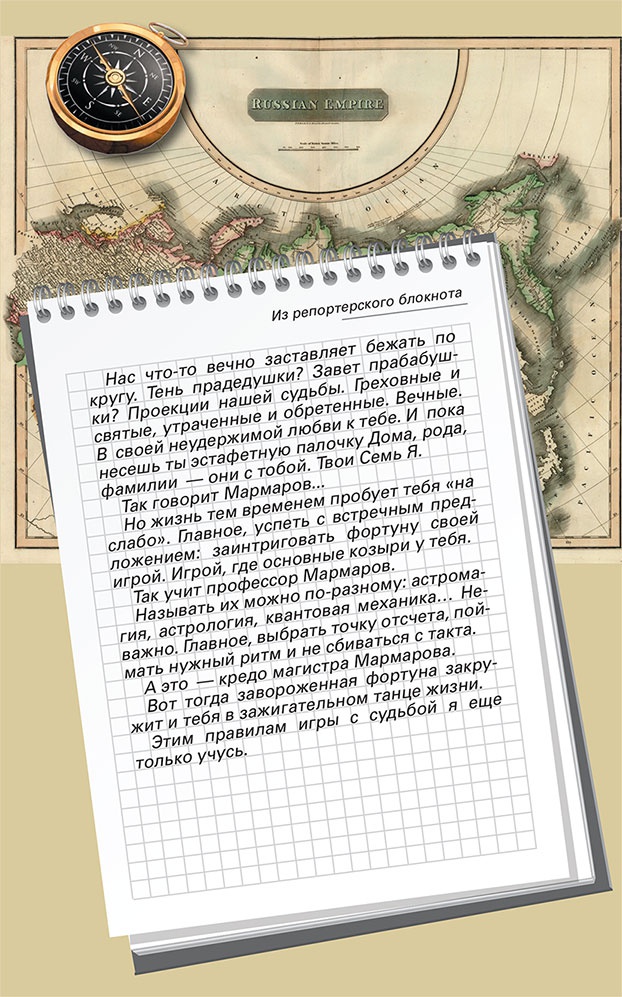 N
E
S
W
RUSSIAN EMPIRE
ARCTIC OCEAN
PACIFIC OCEAN
Из репортерского блокнота
Нас что-то вечно заставляет бежать по
кругу. Тень прадедушки? Завет прабабуш-
ки? Проекции нашей судьбы. Греховные и
святые, утраченные и обретенные. Вечные.
В своей неудержимой любви к тебе. И пока
несешь ты эстафетную палочку Дома, рода,
фамилии — они с тобой. Твои Семь Я.
Так говорит Мармаров...
Но жизнь тем временем пробует тебя «на
слабо». Главное, успеть с встречным пред-
ложением: заинтриговать фортуну своей
игрой. Игрой, где основные козыри у тебя.
Так учит профессор Мармаров.
Называть их можно по-разному: астрома-
гия, астрология, квантовая механика... Не-
важно. Главное, выбрать точку отсчета, пой-
мать нужный ритм и не сбиваться с такта.
А это — кредо магистра Мармарова.
Вот тогда завороженная фортуна закру-
жит и тебя в зажигательном танце жизни.
Этим правилам игры с судьбой я еще
только учусь.